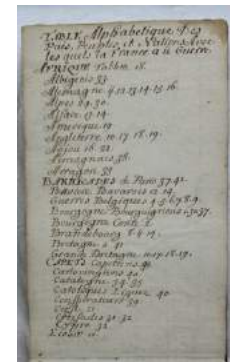 TABLE Alphabetique Des
Païs, Peuples, et Nations Avec
lesquels la France a û Guerre
AFRIQUE Tables 18.
Albigeois 33
Allemagne 9.12.13.14.15.16.
Alpes 29.30.
Alsace 13.14.
Amerique 19
Angleterre 10.17.18.19.
Anjou 16.
Armagnacs 38.
Arragon 35
BARICADES de Paris 37.42
Baviere Bavarois 12.14.
Guerres Belgiques 4.5.6.7.8.9.
Bourgogne Bourguignons
Bourgogne Comté
Brandebourg 8.9.14.
Bretagne
Grande Bretagne 17.18.19.
CAPETS Capetiens
Carlovingiens
Catalogne 34.35
Catoliques Ligue 40
Conspirateurs 39
Corse
Croisades 31.32
Cypre 32
Ecosse